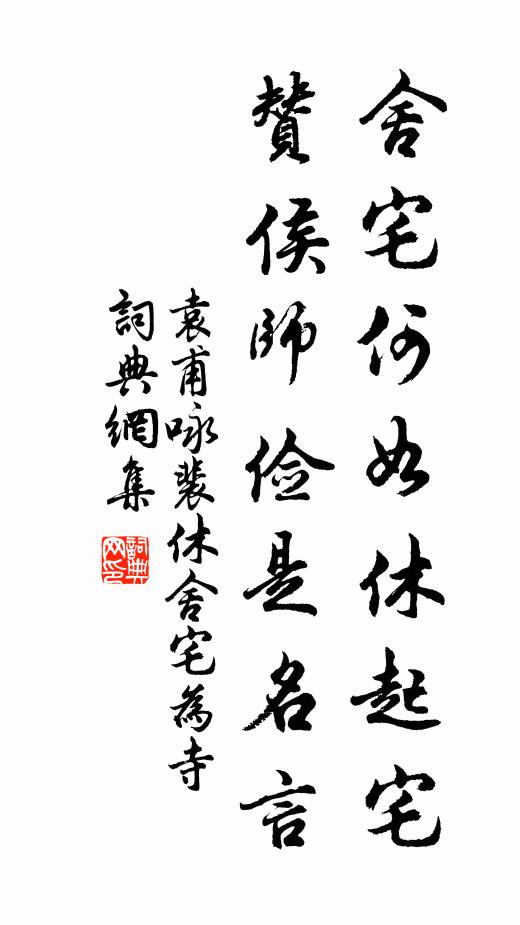 舍宅何如休起宅
贊侯師儉是名言
袁甫咏裴休舍宅為寺
詞典網集
詞典网印